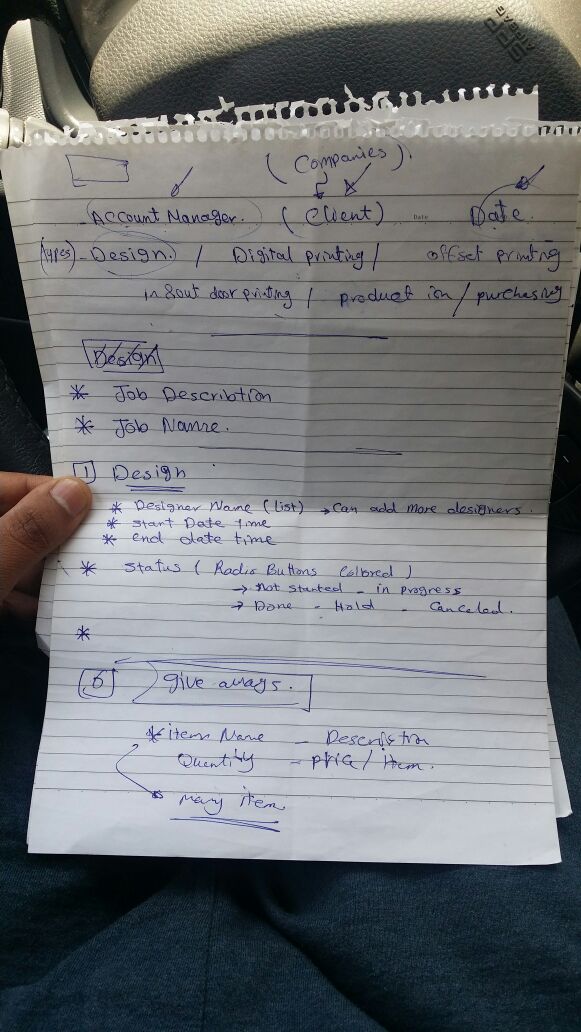 AIRBAG
( Companies ).
Account Manager. ( Client ) Date Date.
(types) - Design. / Digital printing / offset printing
in & out door printing / product ion / purchasing
Design
* Job Describtion
* Job Name.
1 Design
* Designer Name (list) → Can add more designers.
* start Date time
* end date time
* Status ( Radio Buttons Colored )
→ Not started - in progress
→ Done - Hold - Canceled.
*
give aways.
* item Name - Description
Quantity - price / Item.
many item